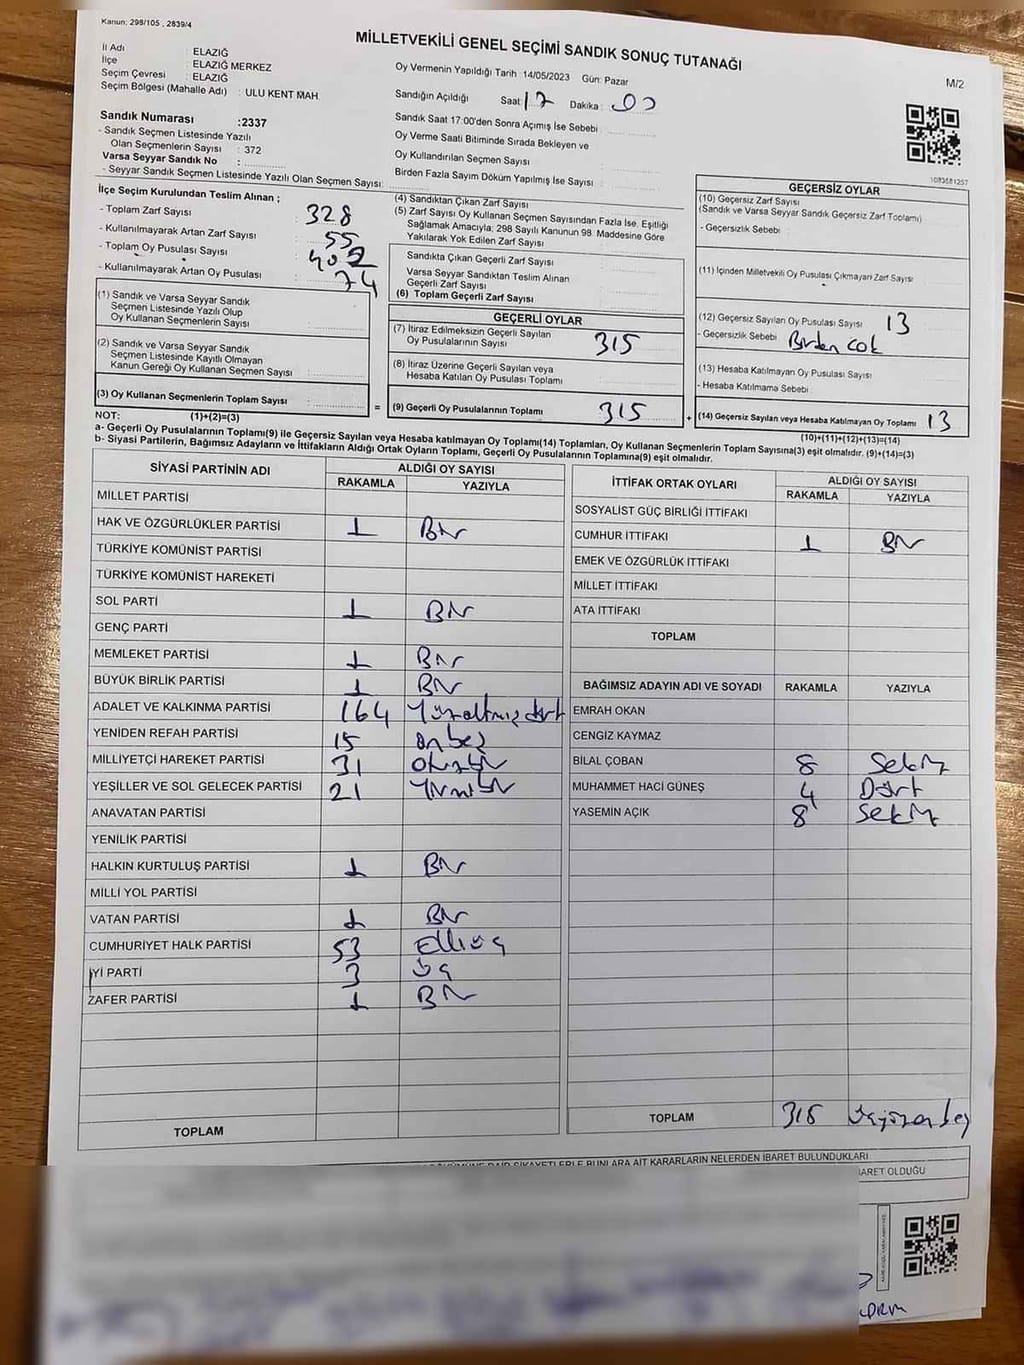 Kanun; 298/105 , 2839/4
MİLLETVEKİLİ GENEL SEÇİMİ SANDIK SONUÇ TUTANAĞI
M/2
İl Adı : ELAZIĞ
İlçe : ELAZIĞ MERKEZ
Seçim Çevresi : ELAZIĞ
Seçim Bölgesi (Mahalle Adı) : ULU KENT MAH.
Sandık Numarası :2337
- Sandık Seçmen Listesinde Yazılı
Olan Seçmenlerin Sayısı : 372
Varsa Seyyar Sandık No :
- Seyyar Sandık Seçmen Listesinde Yazılı Olan Seçmen Sayısı:
Oy Vermenin Yapıldığı Tarih :14/05/2023 Gün: Pazar
Sandığın Açıldığı Saat 17 Dakika : 00
Sandık Saat 17:00'den Sonra Açımış İse Sebebi :
Oy Verme Saati Bitiminde Sırada Bekleyen ve
Oy Kullandırılan Seçmen Sayısı :
Birden Fazla Sayım Döküm Yapılmış İse Sayısı :
1083681257
İlçe Seçim Kurulundan Teslim Alınan ;
- Toplam Zarf Sayısı : 328
- Kullanılmayarak Artan Zarf Sayısı : 55
- Toplam Oy Pusulası Sayısı : 402
- Kullanılmayarak Artan Oy Pusulası : 74
(1) Sandık ve Varsa Seyyar Sandık
Seçmen Listesinde Yazılı Olup
Oy Kullanan Seçmenlerin Sayısı :
(2) Sandık ve Varsa Seyyar Sandık
Seçmen Listesinde Kayıtlı Olmayan
Kanun Gereği Oy Kullanan Seçmen Sayısı :
(3) Oy Kullanan Seçmenlerin Toplam Sayısı :
(1)+(2)=(3)
(4) Sandıktan Çıkan Zarf Sayısı
(5) Zarf Sayısı Oy Kullanan Seçmen Sayısından Fazla İse, Eşitliği
Sağlamak Amacıyla; 298 Sayılı Kanunun 98. Maddesine Göre
Yakılarak Yok Edilen Zarf Sayısı :
Sandıkta Çıkan Geçerli Zarf Sayısı :
Varsa Seyyar Sandıktan Teslim Alınan
Geçerli Zarf Sayısı :
(6) Toplam Geçerli Zarf Sayısı :
GEÇERLİ OYLAR
(7) İtiraz Edilmeksizin Geçerli Sayılan
Oy Pusulalarının Sayısı : 315
(8) İtiraz Üzerine Geçerli Sayılan veya
Hesaba Katılan Oy Pusulası Toplamı :
= (9) Geçerli Oy Pusulalarının Toplamı : 315 +
GEÇERSİZ OYLAR
(10) Geçersiz Zarf Sayısı
(Sandık ve Varsa Seyyar Sandık Geçersiz Zarf Toplamı)
- Geçersizlik Sebebi :
(11) İçinden Milletvekili Oy Pusulası Çıkmayan Zarf Sayısı
(12) Geçersiz Sayılan Oy Pusulası Sayısı : 13
- Geçersizlik Sebebi : Birden Çok
(13) Hesaba Katılmayan Oy Pusulası Sayısı :
- Hesaba Katılmama Sebebi :
(14) Geçersiz Sayılan veya Hesaba Katılmayan Oy Toplamı : 13
(10)+(11)+(12)+(13)=(14)
NOT:
a- Geçerli Oy Pusulalarının Toplamı(9) ile Geçersiz Sayılan veya Hesaba katılmayan Oy Toplamı(14) Toplamları, Oy Kullanan Seçmenlerin Toplam Sayısına(3) eşit olmalıdır. (9)+(14)=(3)
b- Siyasi Partilerin, Bağımsız Adayların ve İttifakların Aldığı Ortak Oyların Toplamı, Geçerli Oy Pusulalarının Toplamına(9) eşit olmalıdır.
SİYASİ PARTİNİN ADI ALDIĞI OY SAYISI
RAKAMLA YAZIYLA
MİLLET PARTİSİ
HAK VE ÖZGÜRLÜKLER PARTİSİ 1 Bir
TÜRKİYE KOMÜNİST PARTİSİ
TÜRKİYE KOMÜNİST HAREKETİ
SOL PARTİ 1 Bir
GENÇ PARTİ
MEMLEKET PARTİSİ 1 Bir
BÜYÜK BİRLİK PARTİSİ 1 Bir
ADALET VE KALKINMA PARTİSİ 164 Yüzaltmışdört
YENİDEN REFAH PARTİSİ 15 onbeş
MİLLİYETÇİ HAREKET PARTİSİ 31 Otuzbir
YEŞİLLER VE SOL GELECEK PARTİSİ 21 Yirmibir
ANAVATAN PARTİSİ
YENİLİK PARTİSİ
HALKIN KURTULUŞ PARTİSİ 1 Bir
MİLLİ YOL PARTİSİ
VATAN PARTİSİ 1 Bir
CUMHURİYET HALK PARTİSİ 53 Elliüç
İYİ PARTİ 3 üç
ZAFER PARTİSİ 1 Bir
TOPLAM
İTTİFAK ORTAK OYLARI ALDIĞI OY SAYISI
RAKAMLA YAZIYLA
SOSYALİST GÜÇ BİRLİĞİ İTTİFAKI
CUMHUR İTTİFAKI 1 Bir
EMEK VE ÖZGÜRLÜK İTTİFAKI
MİLLET İTTİFAKI
ATA İTTİFAKI
TOPLAM
BAĞIMSIZ ADAYIN ADI VE SOYADI RAKAMLA YAZIYLA
EMRAH OKAN
CENGİZ KAYMAZ
BİLAL ÇOBAN 8 Sekiz
MUHAMMET HACİ GÜNEŞ 4 Dört
YASEMİN AÇIK 8 Sekiz
TOPLAM 315 üçyüzonbeş
BUNLARA AİT KARARLARIN NELERDEN İBARET BULUNDUKLARI
BARET OLDUĞU